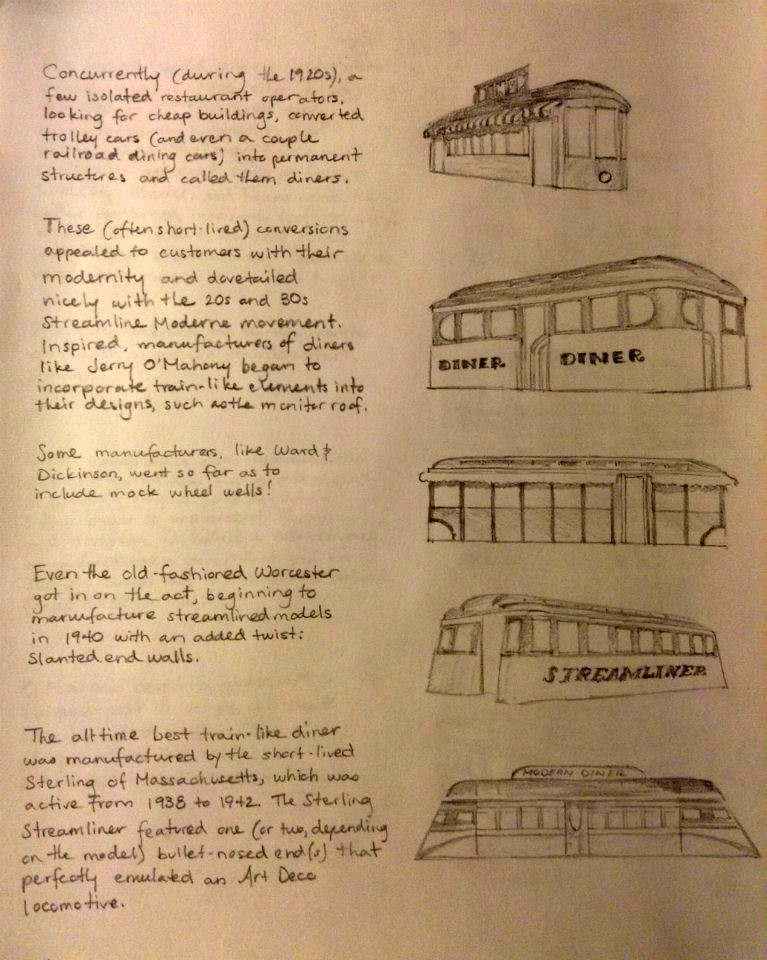 Concurrently (during the 1920s), a
few isolated restaurant operators,
looking for cheap buildings, converted
trolley cars (and even a couple
railroad dining cars) into permanent
structures and called them diners.
These (often short-lived) conversions
appealed to customers with their
modernity and dovetailed
nicely with the 20s and 30s
Streamline Moderne movement.
Inspired, manufacturers of diners
like Jerry O'Mahony began to
incorporate train-like elements into
their designs, such as the monitor roof.
DINER DINER
Some manufacturers, like Ward &
Dickinson, went so far as to
include mock wheel wells!
Even the old-fashioned Worcester
got in on the act, beginning to
manufacture streamlined models
in 1940 with an added twist:
Slanted end walls.
STREAMLINER
The all time best train-like diner
was manufactured by the short-lived
Sterling of Massachusetts, which was
active from 1938 to 1942. The Sterling
Streamliner featured one (or two, depending
on the model) bullet-nosed end(s) that
perfectly emulated an Art Deco
locomotive.
MODERN DINER